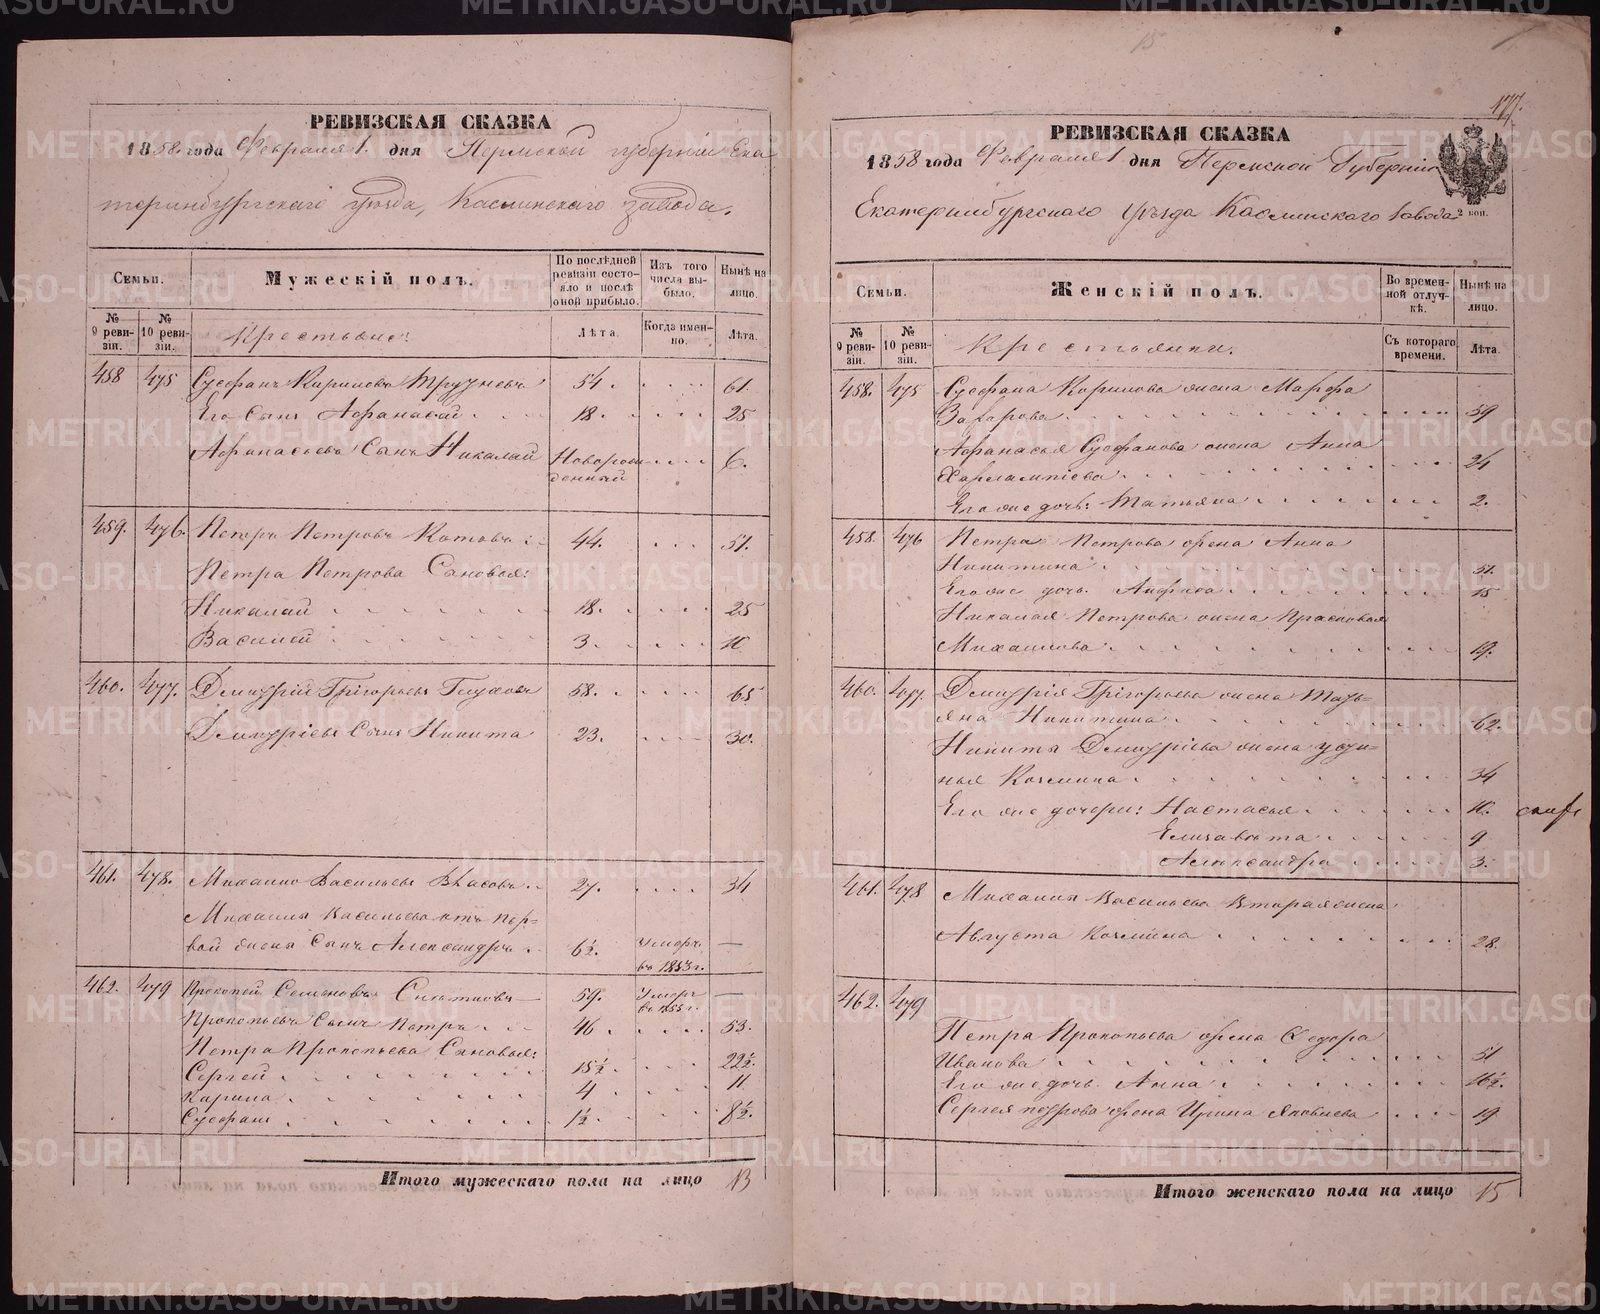 15
177.
РЕВИЗСКАЯ СКАЗКА
1858. года Февраля 1. дня Пермской губернiи Ека
теринбургскаго уѣзда, Каслинскаго завода.
Семьи.
Мужескiй полъ.
По послѣдней ревизiи состояло и послѣ оной прибыло.
Изъ того числа выбыло.
Нынѣ на лицо.
№ 9 ревизiи.
№ 10 ревизiи.
Крестьяне:
Лѣта.
Когда именно.
Лѣта.
458 475 Стефанъ Кириловъ 54. 61.
Его Сынъ Афанасiй 18. 25
Афанасьевъ Сынъ Николай Новорож- 6.
денный
459. 476. Петръ Петровъ Котовъ 44. 51.
Петра Петрова Сыновья:
Николай 18. 25
Василiй 3. 10
460. 477. Дмитрiй Григорьевъ Глуховъ 58. 65
Дмитрiевъ Сынъ Никита 23. 30.
461. 478. Михайло Васильевъ Власовъ 27. 34
Михаила Васильева отъ пер-
вой жены Сынъ Александръ 6½. Умеръ —
въ 1853 г.
462. 479 Прокопей Семеновъ 59. Умеръ —
въ 1855 г.
Прокопьевъ Сынъ Петръ 46 53.
Петра Прокопьева Сыновья:
Сергей 15½ 22½.
Карпъ 4 11
Стефанъ 1½. 8½.
Итого мужескаго пола на лицо 13
РЕВИЗСКАЯ СКАЗКА
1858 года Февраля 1 дня Пермской Губернiи
Екатеринбургскаго уѣзда Каслинскаго Завода
2 коп.
Семьи.
Женскiй полъ.
Во временной отлучкѣ.
Нынѣ на лицо.
№ 9 ревизiи.
№ 10 ревизiи.
Крестьянки.
Съ котораго времени.
Лѣта.
458. 475 Стефана Кирилова жена Марфа
Захарова 59
Афанасья Стефанова жена Анна
Харлампiева 24
Его же дочь: Татьяна 2.
458. 476 Петра Петрова жена Анна
Никитина 51.
Его же дочь Анфиса 15
Николая Петрова жена Прасковья
Михайлова 19.
460. 477. Дмитрiя Григорьева жена Тать-
яна Никитина 62.
Никиты Дмитрiева жена Усти-
нья Козмина 34
Его же дочери: Настасья 10.
Елизавета 9
Александра 3.
461. 478 Михаила Васильева вторая жена
Августа Козмина 28.
462. 479
Петра Прокопьева жена Федора
Иванова 51
Его же дочь Анна 16½.
Сергея Петрова жена Ирина Яковлева 19
Итого женскаго пола на лицо 15
METRIKI.GASO-URAL.RU